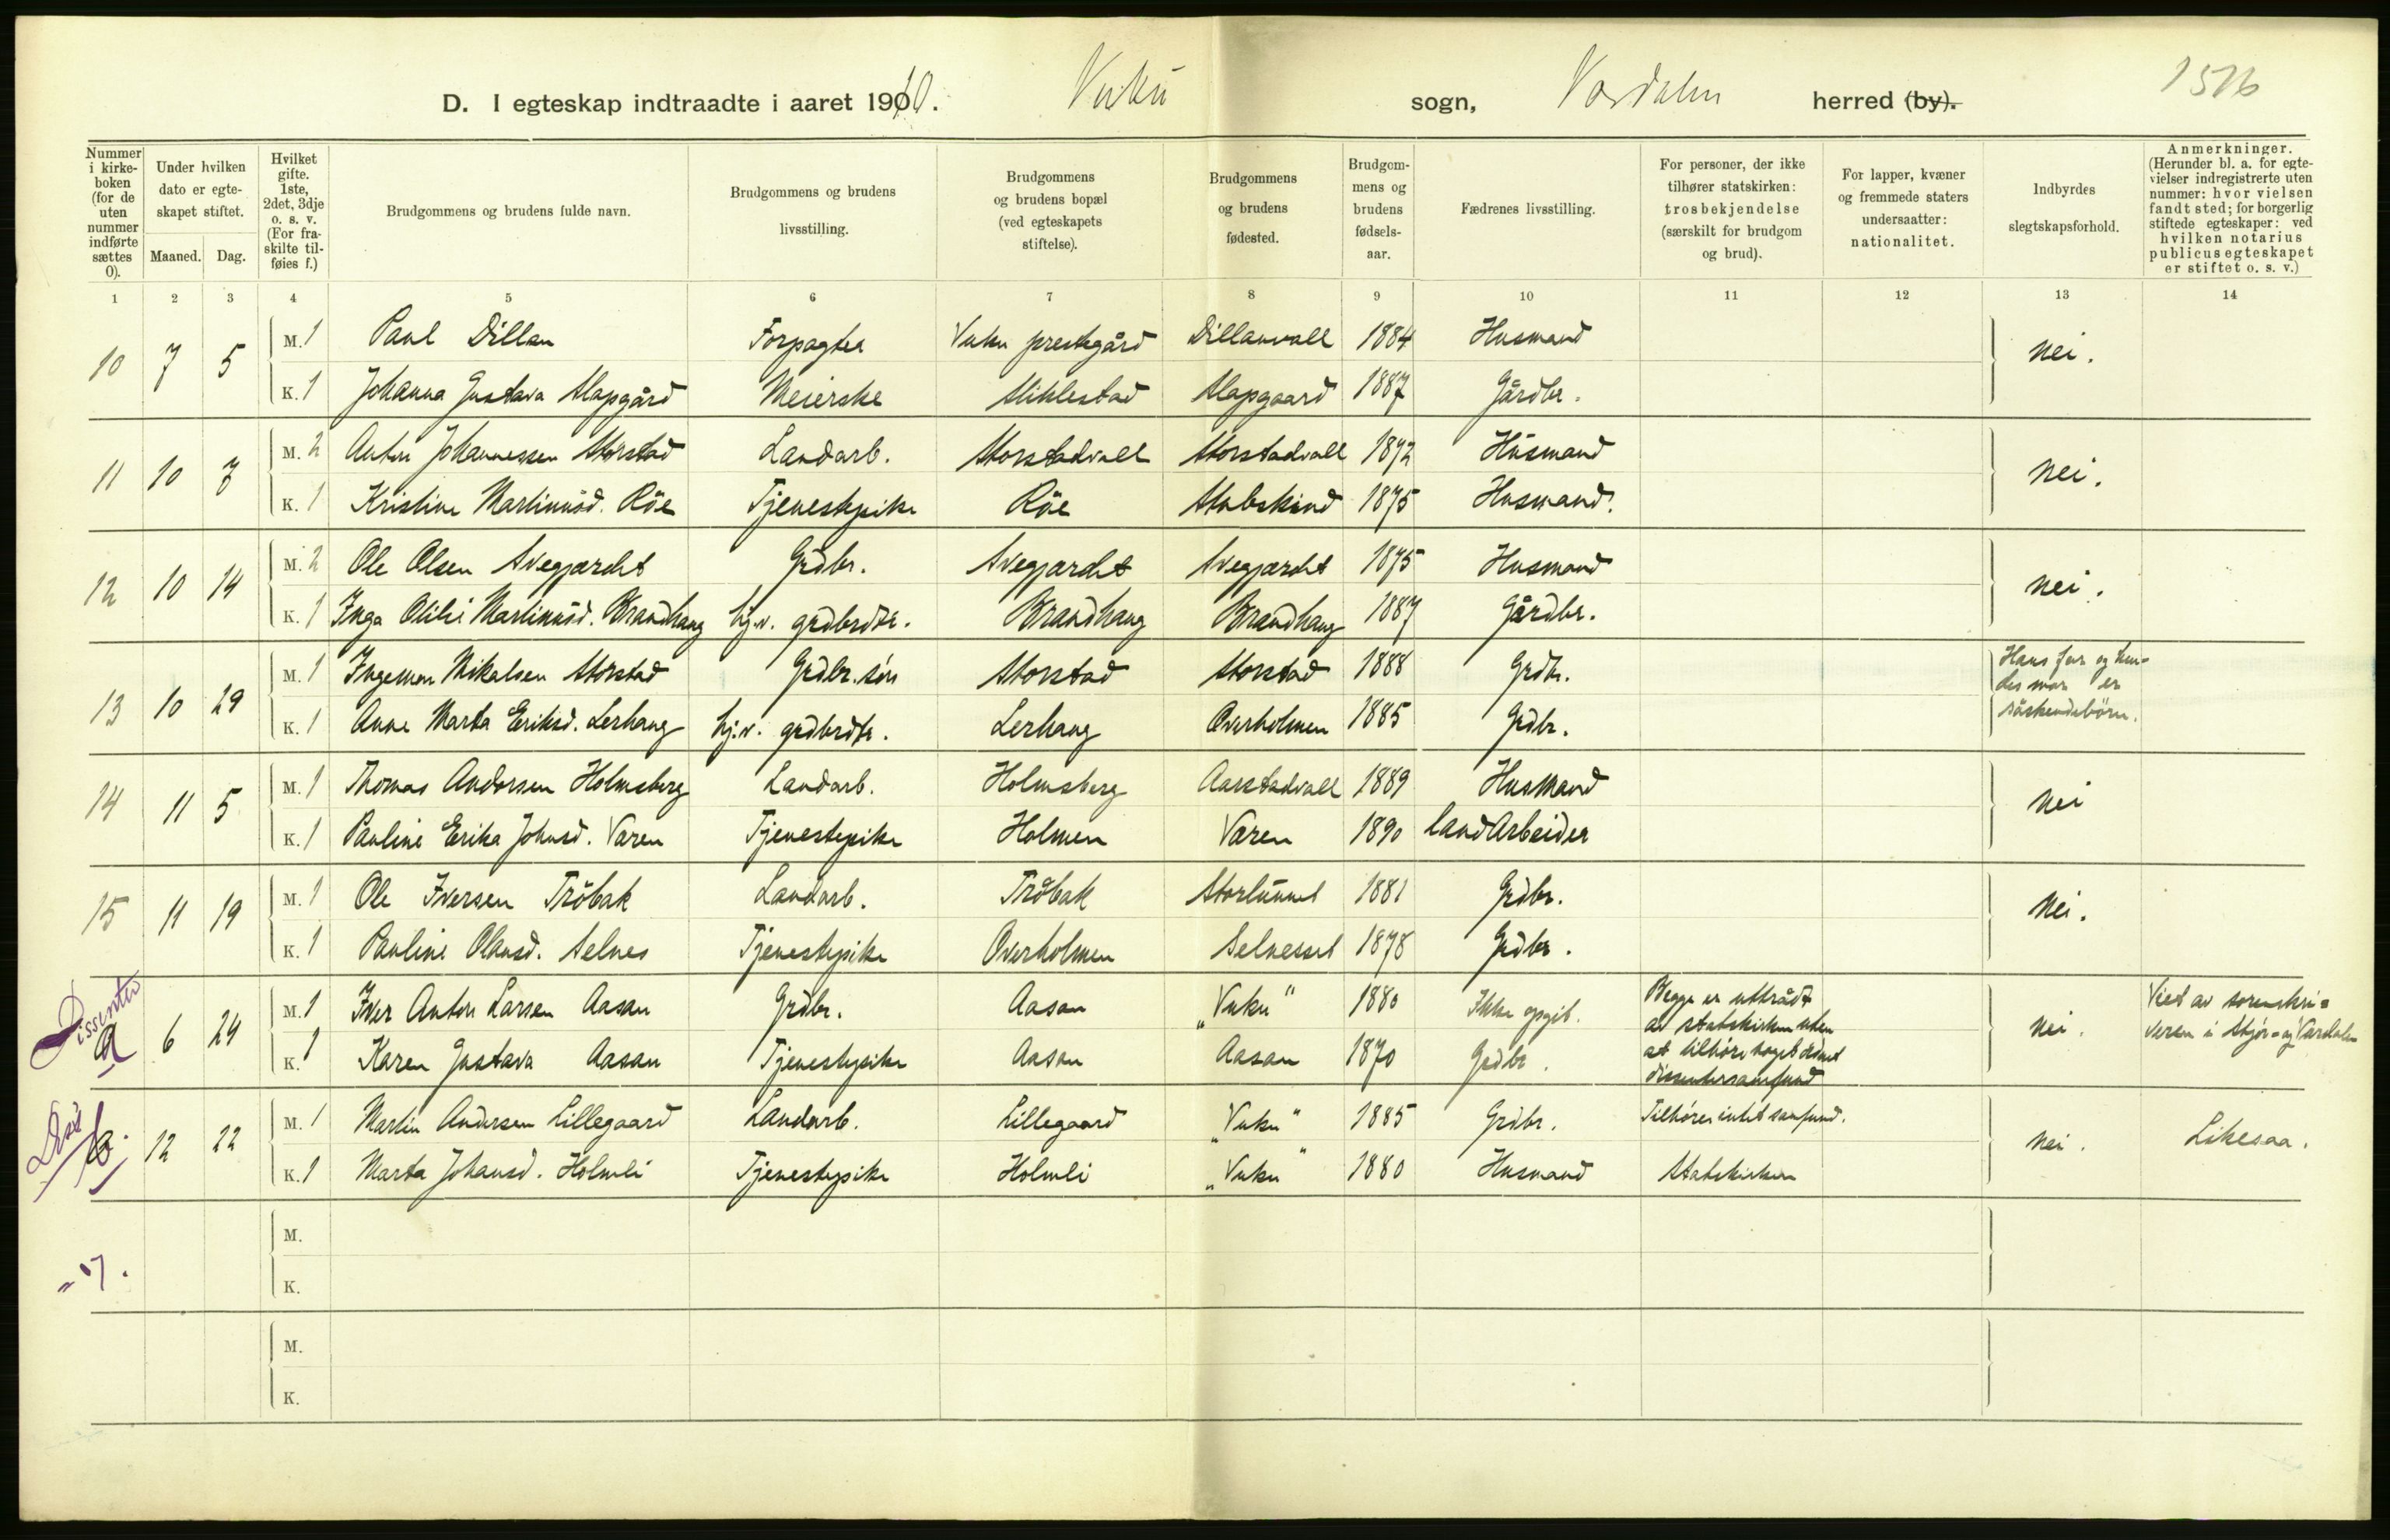 1516
D. I egteskap indtraadte i aaret 1910. Vuku sogn, Værdalen herred (by).
Nummer i kirkeboken (for de uten nummer indførte sættes 0).
Under hvilken dato er egteskapet stiftet.
Maaned. Dag.
Hvilket gifte. 1ste, 2det, 3dje o. s. v. (For fraskilte tilføies f.)
Brudgommens og brudens fulde navn.
Brudgommens og brudens livsstilling.
Brudgommens og brudens bopæl (ved egteskapets stiftelse).
Brudgommens og brudens fødested.
Brudgommens og brudens fødselsaar.
Fædrenes livsstilling.
For personer, der ikke tilhører statskirken: trosbekjendelse (særskilt for brudgom og brud).
For lapper, kvæner og fremmede staters undersaatter: nationalitet.
Indbyrdes slegtskapsforhold.
Anmerkninger. (Herunder bl. a. for egtevielser indregistrerte uten nummer: hvor vielsen fandt sted; for borgerlig stiftede egteskaper: ved hvilken notarius publicus egteskapet er stiftet o. s. v.)
1 2 3 4 5 6 7 8 9 10 11 12 13 14
10 7 5 M. 1 Paul Dillan Forpagter Vuku prestegård Dillanvall 1884 Husmand nei.
K. 1 Johanna Gustava Slapgård Meierske Stiklestad Slapgaard 1887 Gårdbr.
11 10 7 M. 2 Anton Johannessen Storstad Landarb. Storstadvall Storstadvall 1872 Husmand nei.
K. 1 Kristine Martinusd. Röe Tjenestepike Röe Stubskind 1875 Husmand.
12 10 14 M. 2 Ole Olsen Svegjærdet Grdbr. Svegjærdet Svegjærdet 1875 Husmand nei.
K. 1 Inga Otilie Martinusd. Brandhaug hj.v. grdbrdtr. Brandhaug Brandhaug 1887 Gårdbr.
13 10 29 M. 1 Ingeman Mikalsen Storstad Grdbr. sön Storstad Storstad 1888 Grdbr. Hans far og hendes mor er söskendebörn.
K. 1 Anne Marta Eriksd. Lerhaug hj.v. grdbrdtr. Lerhaug Overholmen 1885 Grdbr.
14 11 5 M. 1 Thomas Andorsen Holmsberg Landarb. Holmsberg Aarstadvall 1889 Husmand nei
K. 1 Pauline Erika Johnsd. Varen Tjenestepike Holmen Væren 1890 landarbeider
15 11 19 M. 1 Ole Iversen Tröbak Landarb. Tröbak Storlunnet 1881 Grdbr. Nei.
K. 1 Pauline Olausd. Selnes Tjenestepike Overholmen Selnesset 1878 Grdbr.
Dissenter
a 6 24 M. 1 Iver Anton Larsen Aasan Grdbr. Aasan „Vuku" 1880 Ikke opgit. Begge er utträdt av statskirken uten at tilhöre noget ordnet dissentersamfund nei. Viet av sorenskriveren i Stjör- og Værdalen
K. 1 Karen Gustava Aasan Tjenestepike Aasan Aasan 1870 Grdbr.
Diss.
b. 12 22 M. 1 Martin Andersen Lillegaard Landarb. Lillegaard „Vuku" 1885 Grdbr. Tilhörer intet samfund. nei. Likesaa.
K. 1 Marta Johansd. Holmli Tjenestepike Holmli „Vuku" 1880 Husmand Statskirken
M.
K.
M.
K.